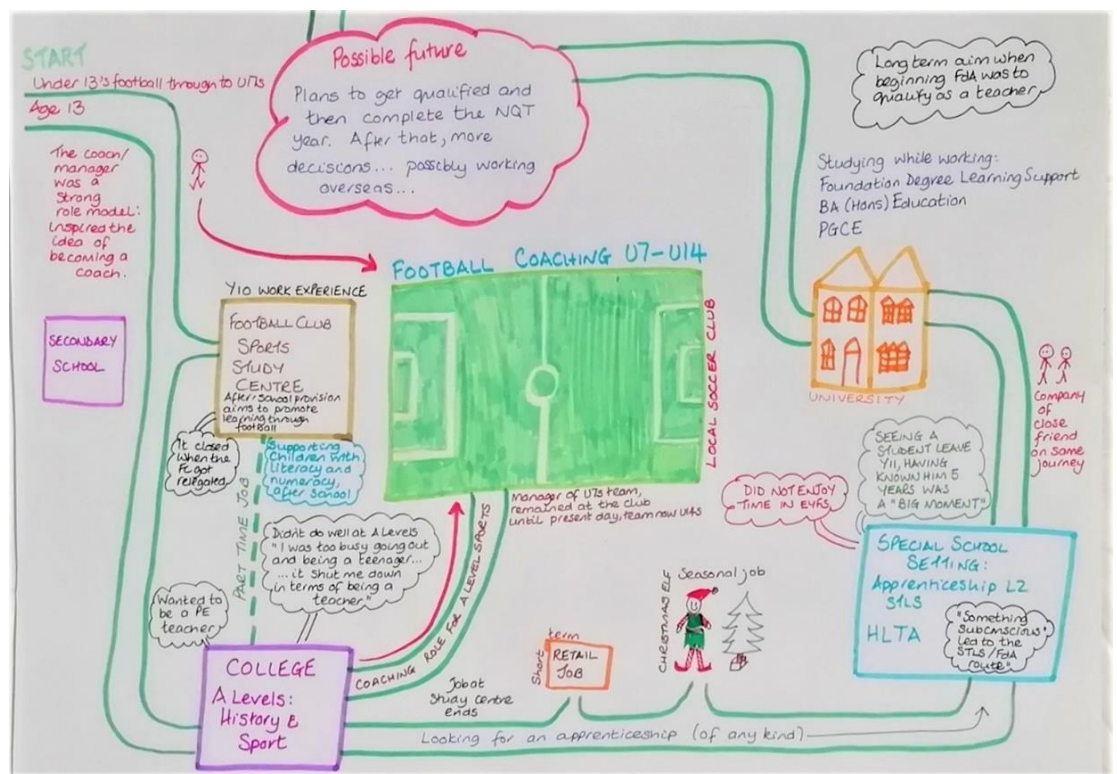 START
Under 13's football through to U17s
Age 13
The coach/
manager
was a
strong
role model:
inspired the
idea of
becoming a
coach.
Possible future
Plans to get qualified and
then complete the NQT
year. After that, more
decisions... possibly working
overseas...
Long term aim when
beginning FdA was to
qualify as a teacher
Studying while working:
Foundation Degree Learning Support
BA (Hons) Education
PGCE
UNIVERSITY
Company
of
close
friend
on same
journey
FOOTBALL COACHING U7-U14
LOCAL SOCCER CLUB
Y10 WORK EXPERIENCE
FOOTBALL CLUB
SPORTS
STUDY
CENTRE
After-school provision
aims to promote
learning through
football
SECONDARY
SCHOOL
It closed
when the
FC got
relegated
Supporting
children with
literacy and
numeracy,
after school
PART TIME JOB
Didn't do well at A Levels
"I was too busy going out
and being a teenager...
...it shut me down
in terms of being a
teacher"
Wanted to
be a PE
teacher
COLLEGE
A Levels:
History &
Sport
COACHING ROLE FOR A LEVEL SPORTS
Manager of U7s team,
remained at the club
until present day, team now U14s
Job at
study centre
ends
Short term
RETAIL
JOB
CHRISTMAS ELF
Seasonal job
Looking for an apprenticeship (of any kind)
DID NOT ENJOY
TIME IN EYFS
SEEING A
STUDENT LEAVE
Y11, HAVING
KNOWN HIM 5
YEARS WAS
A "BIG MOMENT"
SPECIAL SCHOOL
SETTING:
Apprenticeship L2
STLS
HLTA
"Something
subconscious"
led to the
STLS/FdA
route"